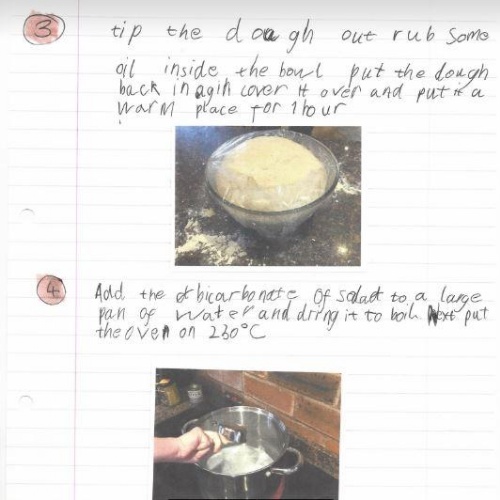 3
tip the dough out rub some
oil inside the bowl put the dough
back in agin cover it over and put it a
warm place for 1 hour
4
Add the bicarbonate of
to a large
pan of water and dring it to boil Next put
the oven on 230°C